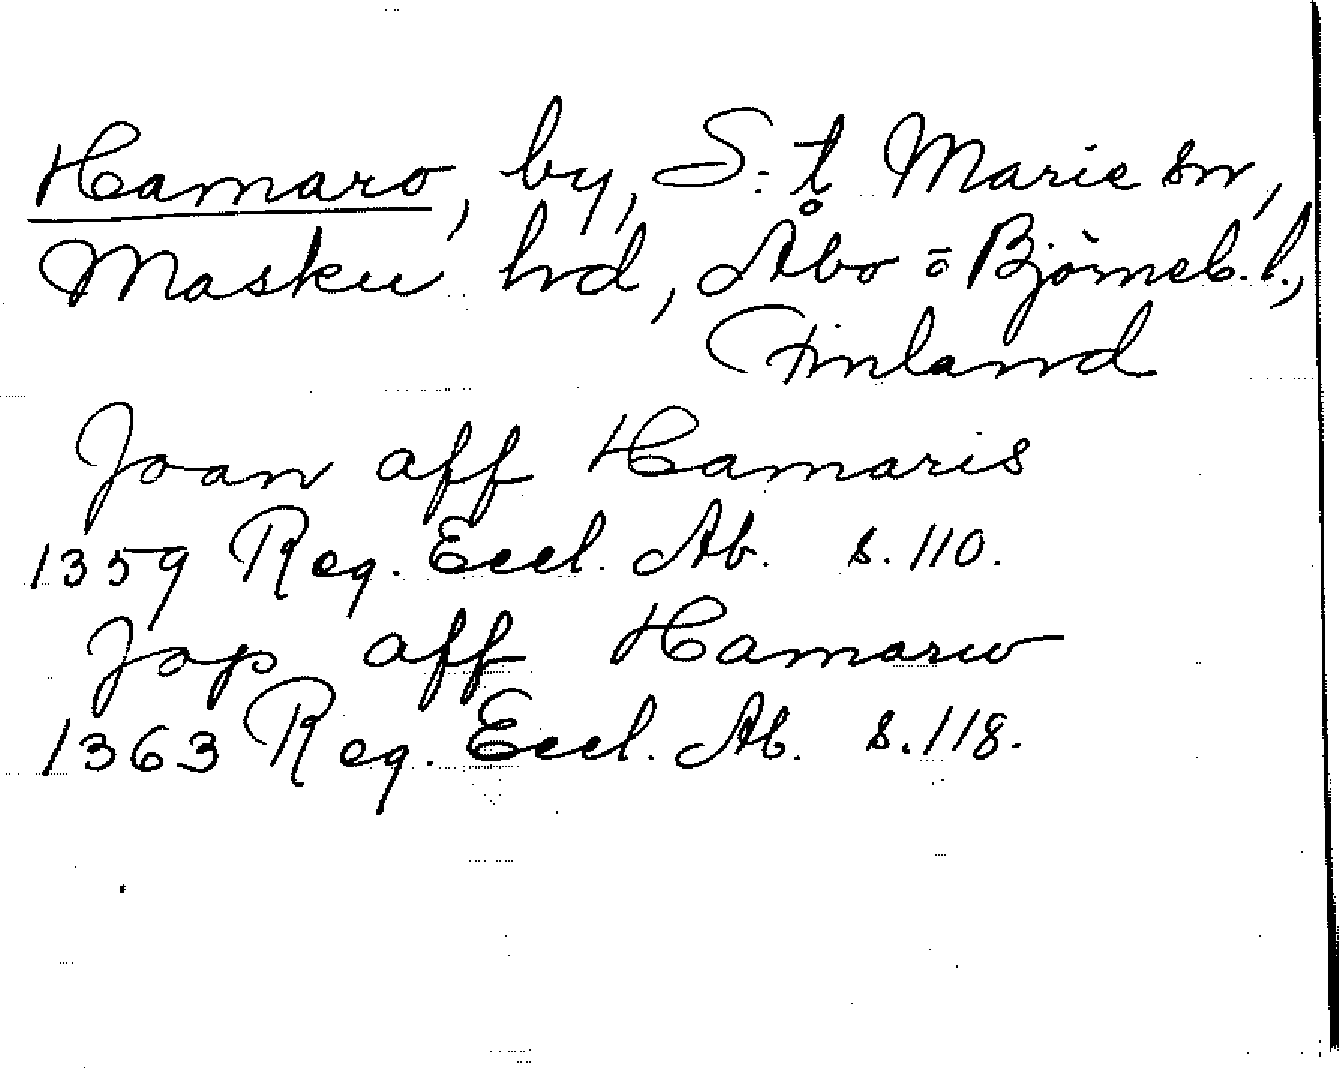 Hamaro, by, S:t Marie sn,
Masku hd, Åbo o Björneb. l.,
Finland
Joan aff Hamaris
1359 Reg. Eccl. Ab. s. 110.
Jop aff Hamarw
1363 Reg. Eccl. Ab. s. 118.